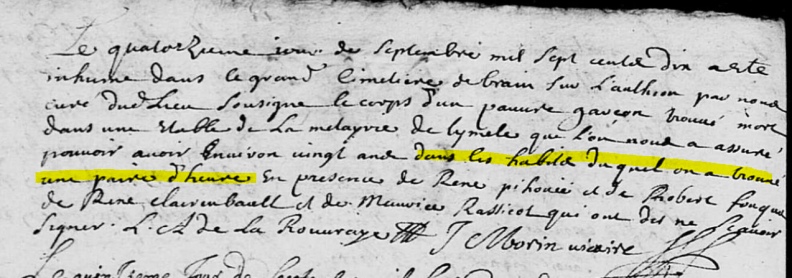 Le quatorzieme jour de septembre mil sept cents dix a este
inhumé dans le grand Cimetiere de brain sur L'authion par nous
curé dud Lieu soussigné le corps d'un pauvre garçon trouvé mort
dans une Etable de La metayrie de lymele que l'on nous a assuré
pouvoir avoir Environ vingt ans dans les habits duquel on a trouvé
une paire d'heure En presence de René et de Robert fouque
de René clairembault et de Maurice Rassicot qui ont dit ne scavoir
signer. L. A de la Rouvraye J Morin vicaire